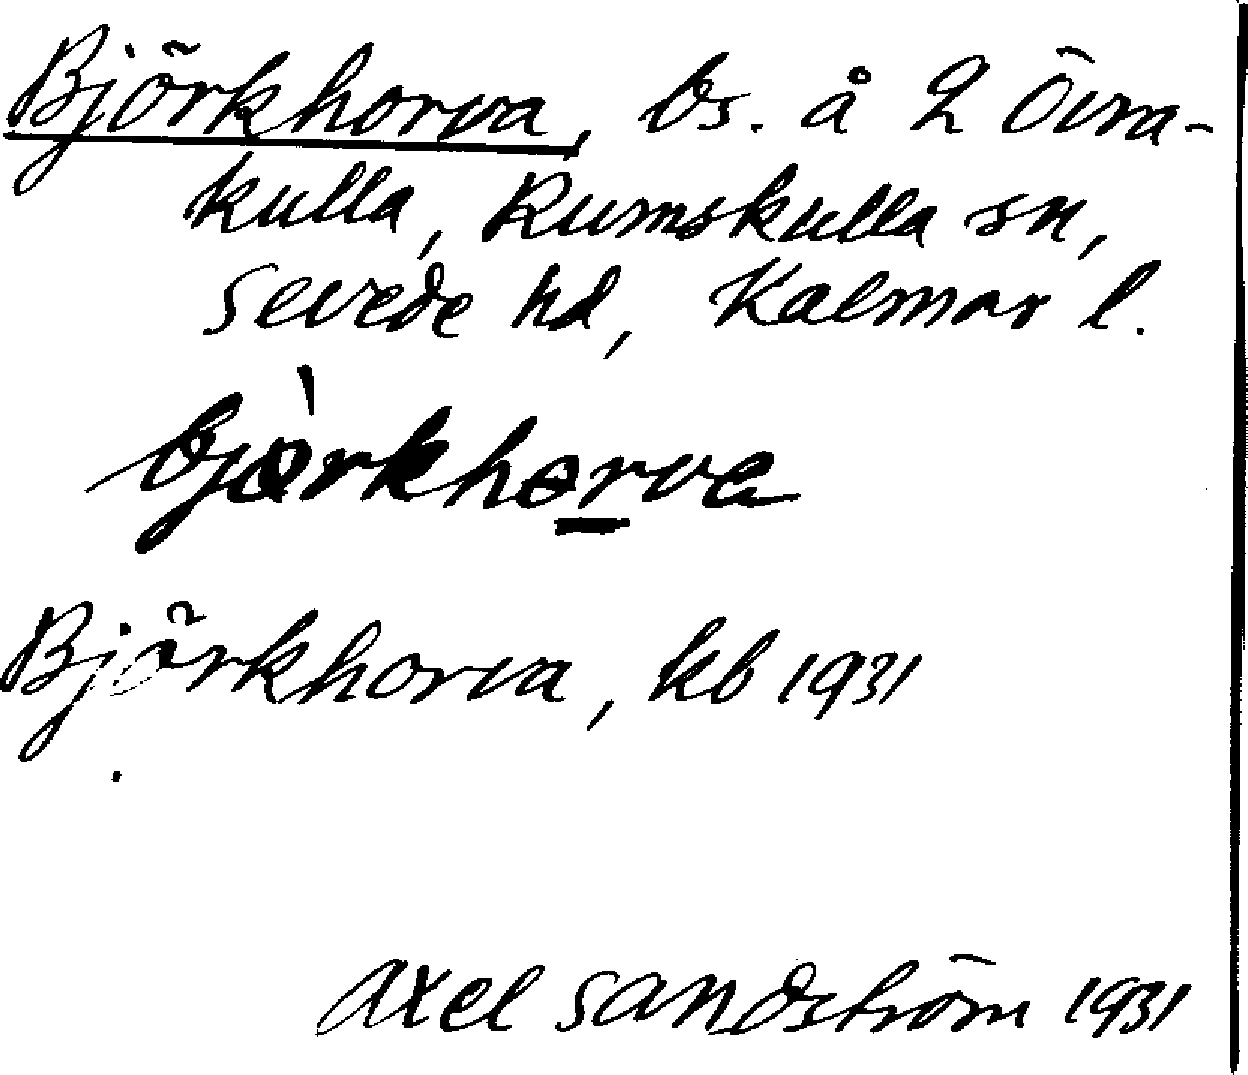 Björkhorva, bs. å 2 Övra-
kulla, Rumskulla sn,
Sevede hd, Kalmar l.
bjòrkhorva
Björkhorva, kb 1931
Axel Sandström 1931